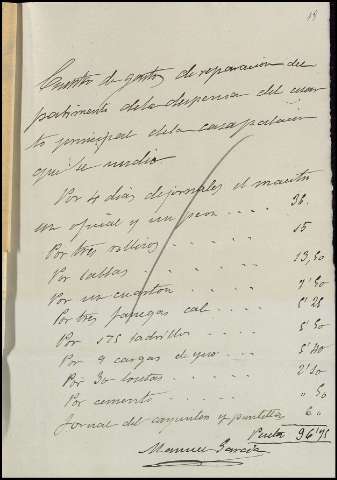 19
Cuenta de gastos de reparacion del
pabimento dela despensa del cuar
to principal dela casa palacio
que se undio
Por 4 dias de jornales el maestro
un oficial y un peon .... 36.
Por tres rollizos ...... 15
Por tablas ...... 13,50
Por un cuarton ..... 2'50
Por tres fanegas cal .... 5'25
Por 175 ladrillos .... 5'50
Por 9 cargas de yeso ... 5'40
Por 30 losetas ..... 2'10
Por cemento ..... " 50
Jornal del 6"
96'75
Manuel Garcia